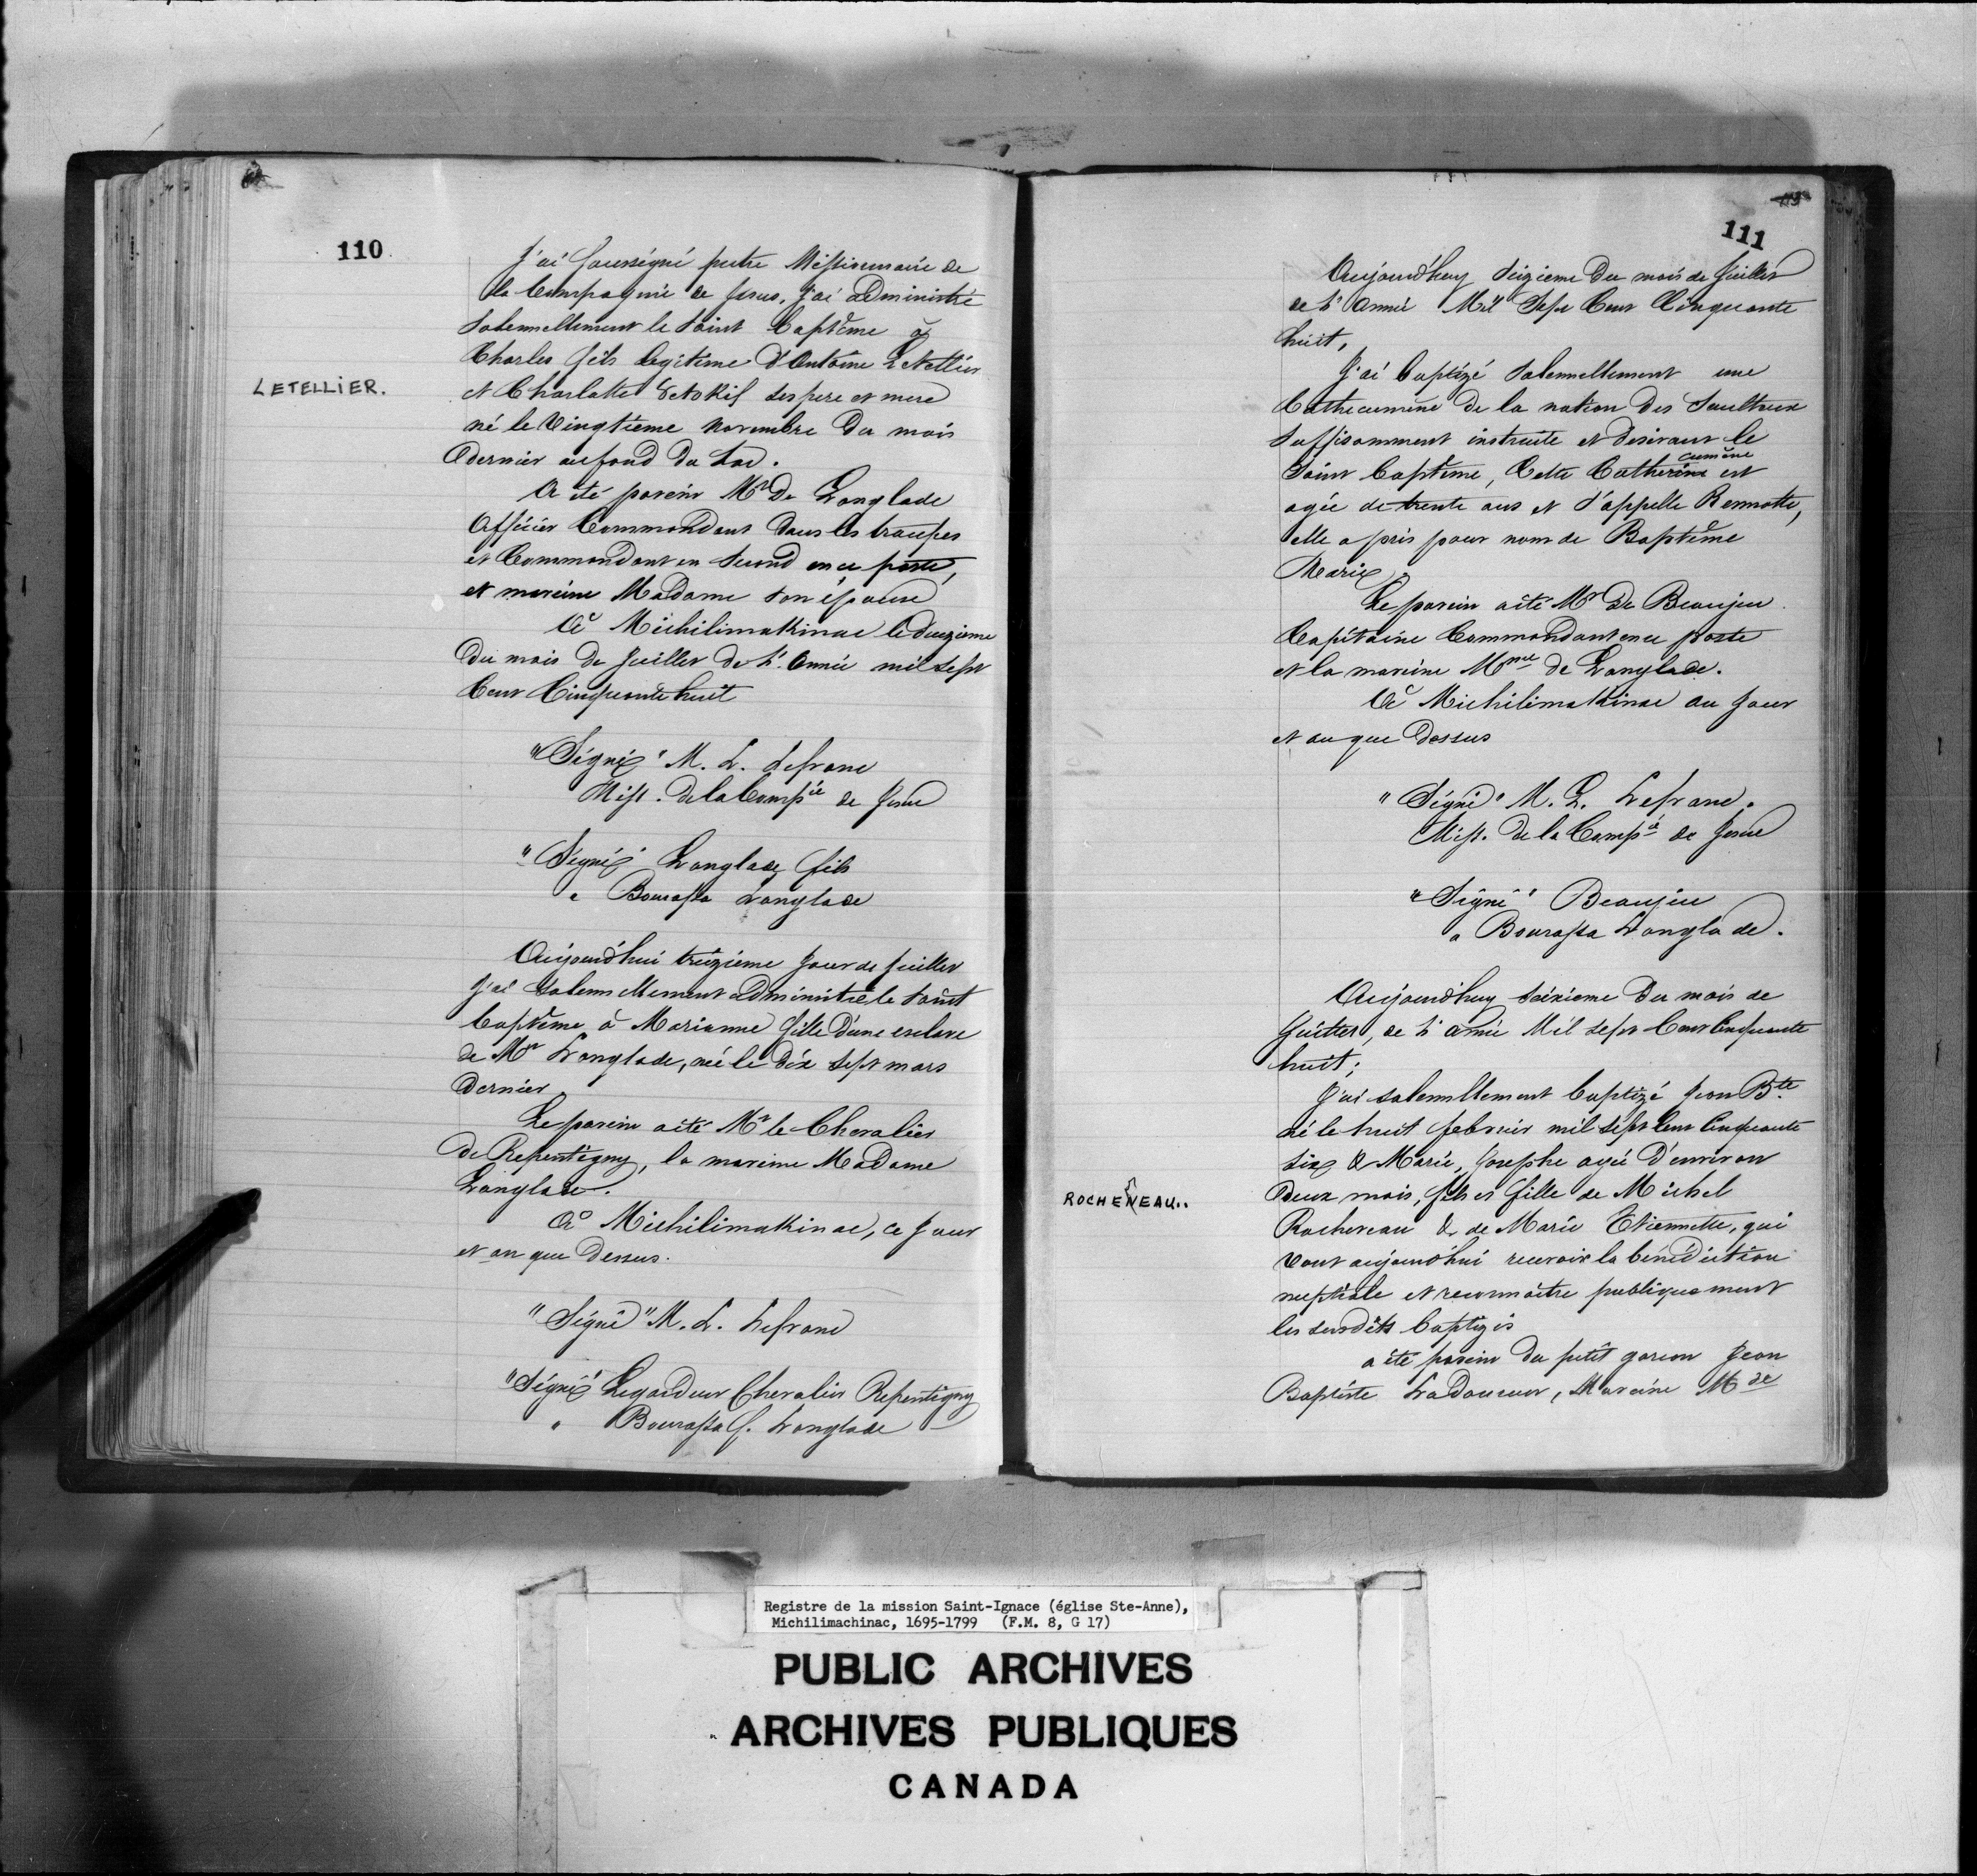 110
J'ai soussigné prétre Missionnaire de
la Compagnie de Jesus, j'ai administré
solennellement le saint baptême à
Charles fils legitime d'Antoine Letellier
LETELLIER.
et Charlotte ses pere et mere
né le Vingtième novembre du mois
dernier au fond du Lac.
A été parein Mr De Langlade
Officier Commandant dans les troupes
et Commandant en second en ce poste,
et mareine Madame son épouse
A Michilimakinac le
du mois de juillet de l'Année mil sept
Cent Cinquante huit
"Signé" M. L. Lefranc
Miss. de la Compie de Jesus
"Signé" Langlade fils
" Bourassa Langlade
Aujourd'hui treizième jour de juillet
j'ai solennellement administré le saint
baptême à Marianne fille d'une esclave
de Mr Langlade, née le dix sept mars
dernier
Le parein a été Mr le Chevalier
de Repentigny, la mareine Madame
Langlade.
A Michilimakinac, ce jour
et an que Dessus.
"Signé" M. L. Lefranc
"Signé" Legardeur Chevalier Repentigny
" Bourassa f. Langlade
111
Aujourd'huy seizieme du mois de Juillet
de l'Année Mil Sept Cent Cinquante
huit,
J'ai baptizé solennellement une
Cathecumène de la nation des Saulteux
suffisamment instruite et desirant le
cumène
Saint baptême, Cette Catherine est
agée de trente ans et s'appelle Remotte,
elle a pris pour nom de Baptême
Marie.
Le parein a été Mr De Beaujeu
Capitaine Commandant en ce poste
et la mareine Mme de Langlade.
A Michilimakinac au jour
et an que Dessus
"Signé" M. L. Lefranc.
Miss. de la Compie de Jesus
"Signé" Beaujeu
" Bourassa Langlade.
Aujourd'huy seizieme du mois de
Juillet, de l'année Mil sept Cent Cinquante
huit;
J'ai solennellement baptizé Jean Bte
né le huit febvrier mil sept Cent Cinquante
six & Marie, Josephe agée d'environ
deux mois, fils et fille de Michel
ROCHENEAU..
Rochereau & de Marie Etiennette, qui
vont aujourd'hui recevoir la bénédiction
nuptiale et reconnaitre publiquement
les susdits baptizés
a été parein du petit garson Jean
Baptiste Ladouceur, Mareine Mde
Registre de la mission Saint-Ignace (église Ste-Anne),
Michilimachinac, 1695-1799 (F.M. 8, G 17)
PUBLIC ARCHIVES
ARCHIVES PUBLIQUES
CANADA